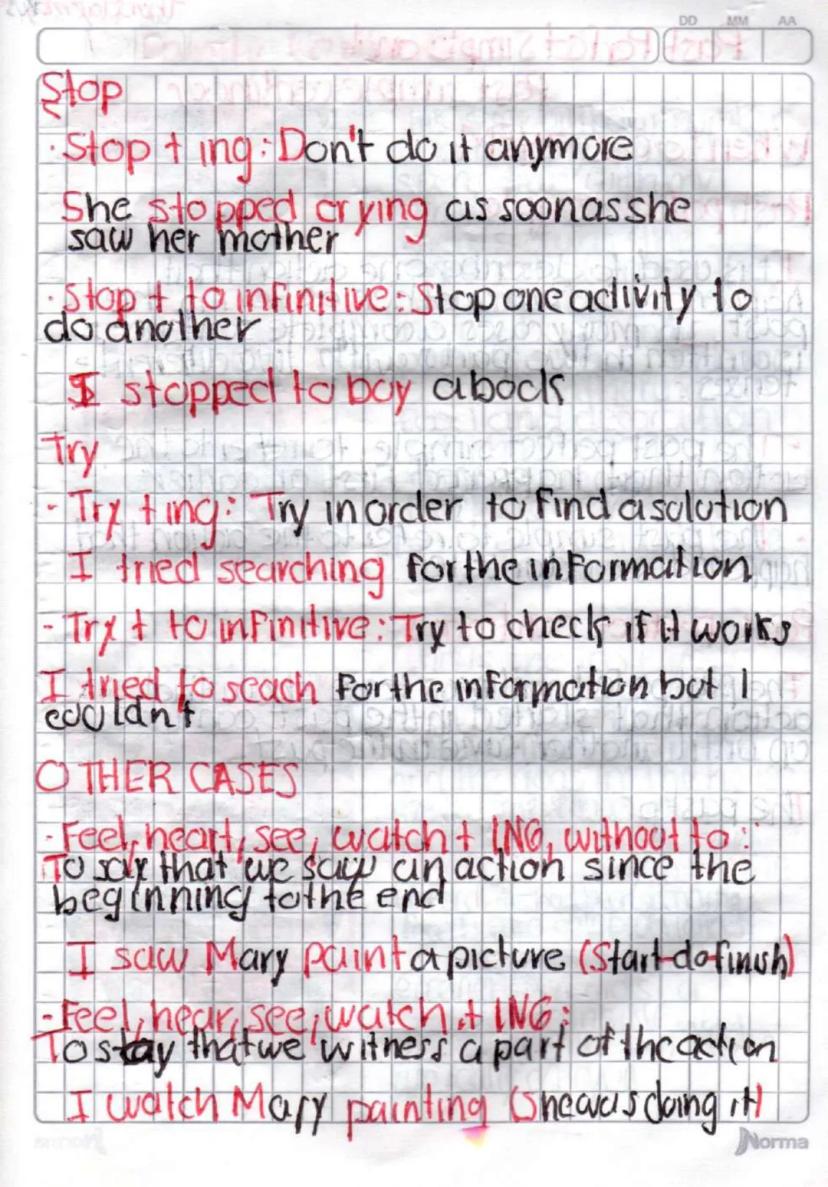 DD MM AA
Stop
· Stop + ing: Don't do it anymore
She stopped crying as soon as she
saw her mother
· Stop + to infinitive: Stop one activity to
do another
I stopped to buy a book
Try
- Try + ing: Try in order to find a solution
I tried searching for the information
- Try + to infinitive: Try to check if it works
I tried to seach for the information but I
couldn't
OTHER CASES
- Feel, heart, see, watch + ING, without to:
To say that we saw an action since the
beginning to the end
I saw Mary paint a picture (Start-do-finish)
- Feel, hear, see, watch + ING:
To stay that we witness a part of the action
I watch Mary painting (she was doing it)
Norma